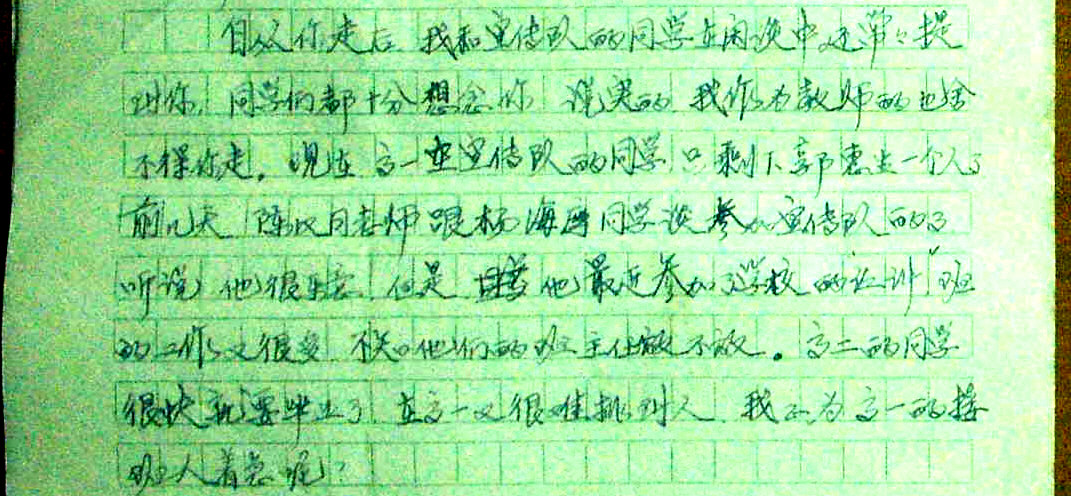 自从你走后 我和宣传队的同学在闲谈中还常々提
到你 同学们都十分想念你 说实的 我作为教师的也舍
不得你走。现在 高一在宣传队的同学只剩下郭惠生一个人了
前几天 陈 老师跟杨海 同学谈参加宣传队的了
听说 他很乐意 但是 他最近参加了学校的 训"班
的工作又很多 不知他们的班主任放不放。高二的同学
很快就要毕业了 在高一又很难挑到人 我正为高一的接
班人着急呢?